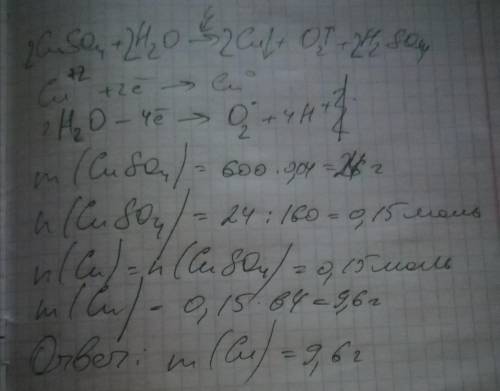 2CuSO4 + 2H2O → 2Cu↓ + O2↑ + 2H2SO4
Cu+2 + 2ē → Cu0
2H2O – 4ē → O2 + 4H+
m(CuSO4) = 600·0,04 = 24 г
n(CuSO4) = 24 : 160 = 0,15 моль
n(Cu) = n(CuSO4) = 0,15 моль
m(Cu) = 0,15·64 = 9,6 г
Ответ: m(Cu) = 9,6 г